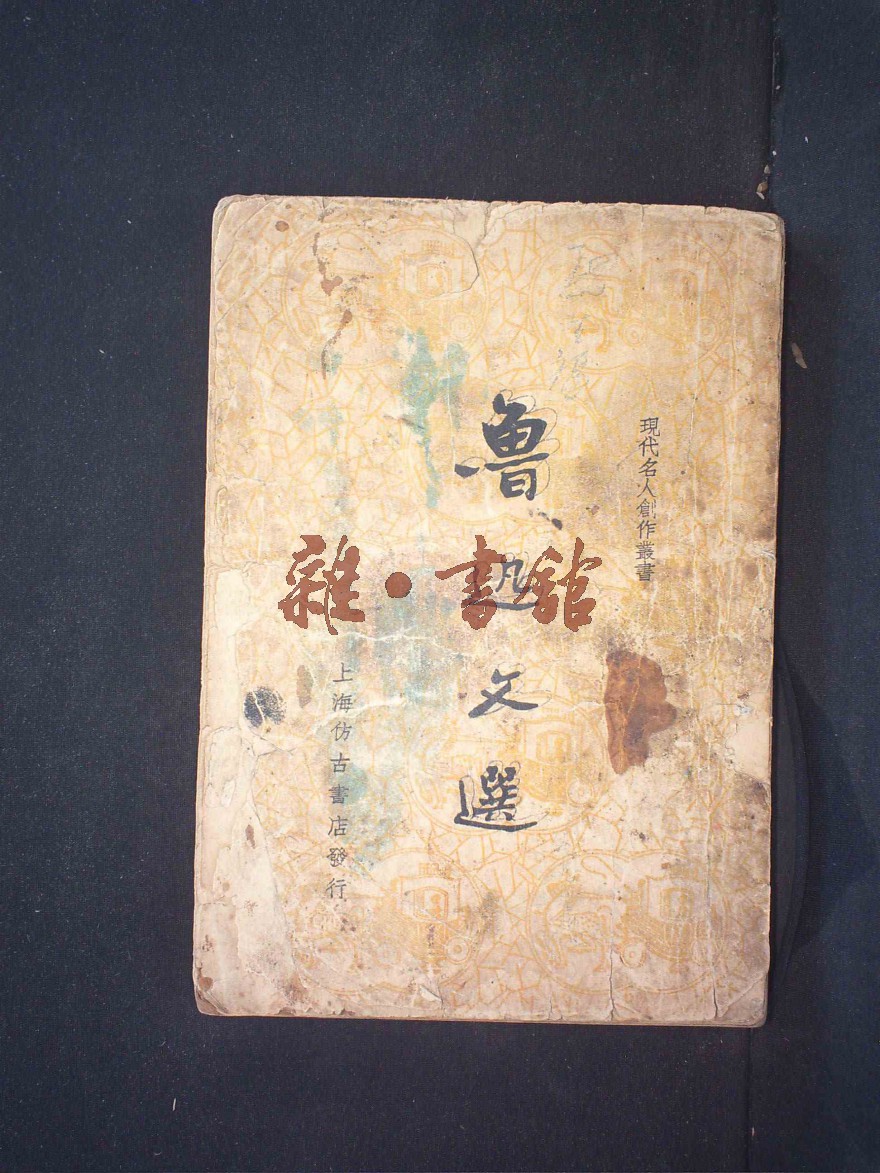 現代名人創作叢書
魯迅文選
上海仿古書店發行
雜·書館